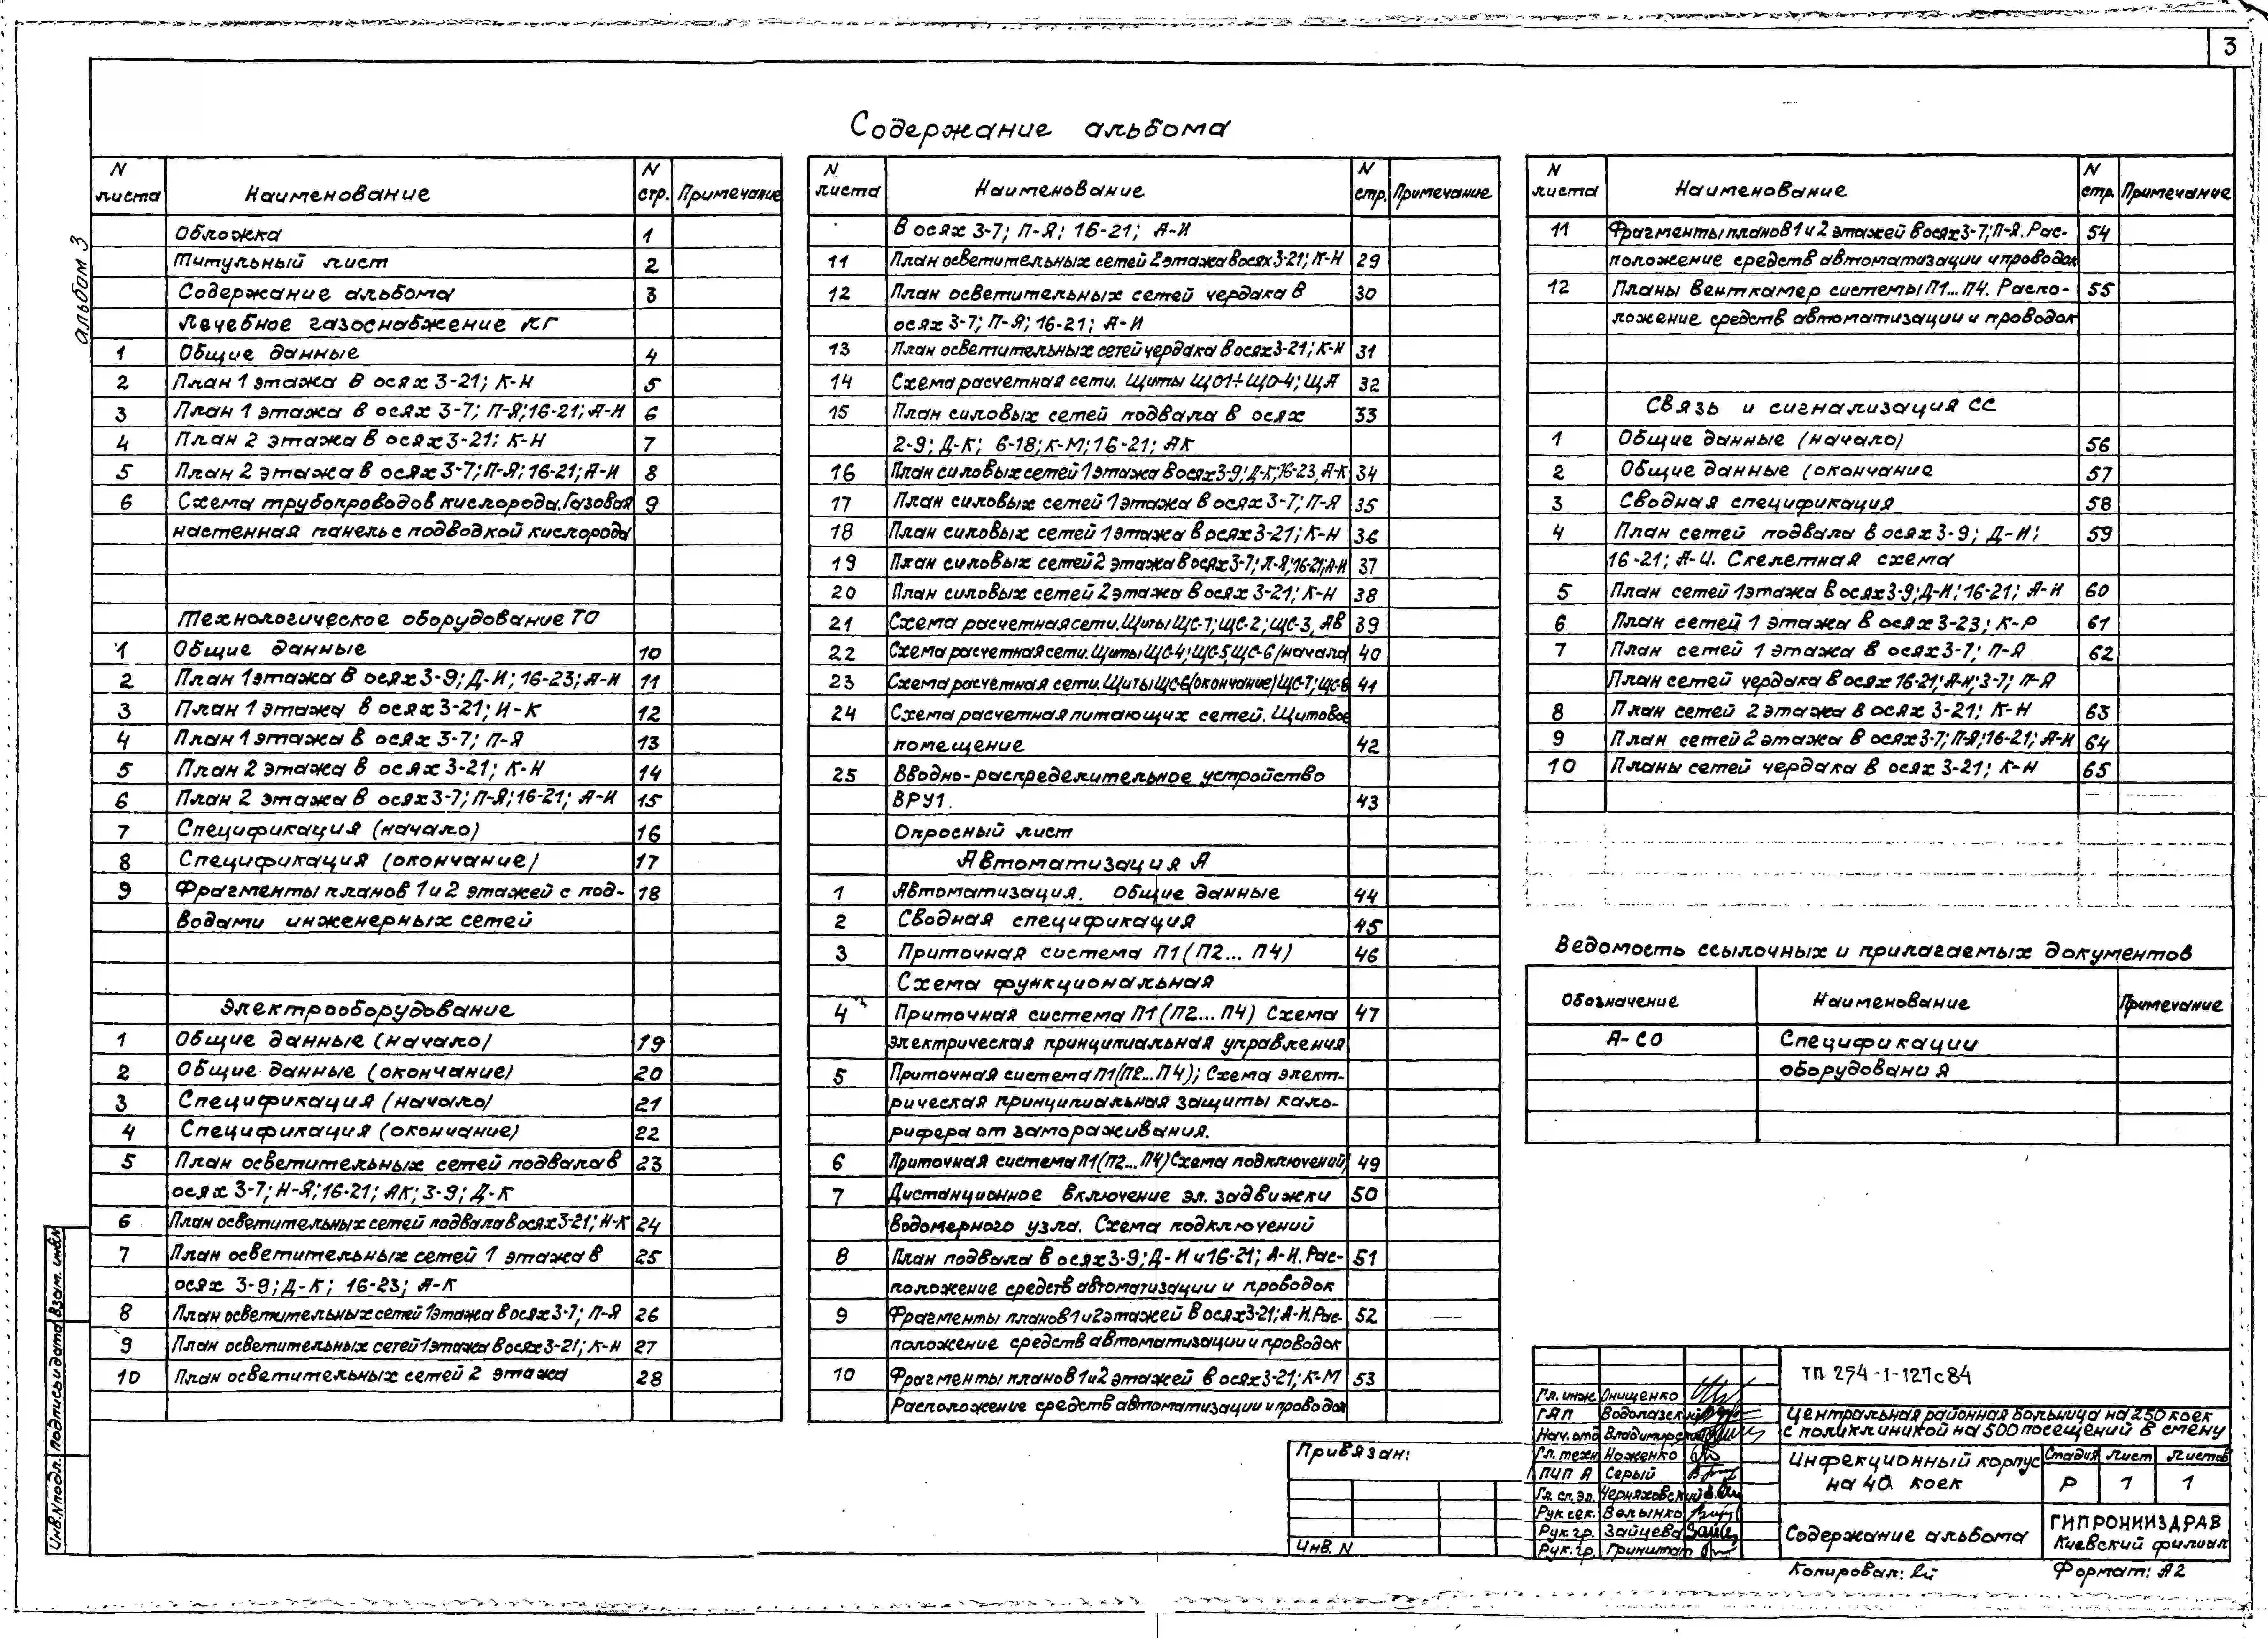 3
альбом 3
Содержание альбома
N листа Наименование N стр. Примечание
Обложка 1
Титульный лист 2
Содержание альбома 3
Лечебное газоснабжение ЛГ
1 Общие данные 4
2 План 1 этажа в осях 3-21; К-Н 5
3 План 1 этажа в осях 3-7; П-Я; 16-21; А-И 6
4 План 2 этажа в осях 3-21; К-Н 7
5 План 2 этажа в осях 3-7; П-Я; 16-21; А-И 8
6 Схема трубопроводов кислорода. Газовая 9
настенная панель с подводкой кислорода
Технологическое оборудование ТО
1 Общие данные 10
2 План 1 этажа в осях 3-9; Д-И; 16-23; А-И 11
3 План 1 этажа в осях 3-21; И-К 12
4 План 1 этажа в осях 3-7; П-Я 13
5 План 2 этажа в осях 3-21; К-Н 14
6 План 2 этажа в осях 3-7; П-Я; 16-21; А-И 15
7 Спецификация (начало) 16
8 Спецификация (окончание) 17
9 Фрагменты планов 1 и 2 этажей с под- 18
водами инженерных сетей
Электрооборудование
1 Общие данные (начало) 19
2 Общие данные (окончание) 20
3 Спецификация (начало) 21
4 Спецификация (окончание) 22
5 План осветительных сетей подвала в 23
осях 3-7; Н-Я; 16-21; АК; 3-9; Д-К
6 План осветительных сетей подвала в осях 3-21; Н-К 24
7 План осветительных сетей 1 этажа в 25
осях 3-9; Д-К; 16-23; А-К
8 План осветительных сетей 1 этажа в осях 3-7; П-Я 26
9 План осветительных сетей 1 этажа в осях 3-21; К-Н 27
10 План осветительных сетей 2 этажа 28
N листа Наименование N стр. Примечание
в осях 3-7; П-Я; 16-21; А-И
11 План осветительных сетей 2 этажа в осях 3-21; К-Н 29
12 План осветительных сетей чердака в 30
осях 3-7; П-Я; 16-21; А-И
13 План осветительных сетей чердака в осях 3-21; К-Н 31
14 Схема расчетная сети. Щиты ЩО1÷ЩО-4; ЩА 32
15 План силовых сетей подвала в осях 33
2-9; Д-К; 6-18; К-М; 16-21; АК
16 План силовых сетей 1 этажа в осях 3-9; Д-К; 16-23, А-К 34
17 План силовых сетей 1 этажа в осях 3-7; П-Я 35
18 План силовых сетей 1 этажа в осях 3-21; К-Н 36
19 План силовых сетей 2 этажа в осях 3-7; П-Я; 16-21; А-И 37
20 План силовых сетей 2 этажа в осях 3-21; К-Н 38
21 Схема расчетная сети. Щиты ЩС-1; ЩС-2; ЩС-3, АВ 39
22 Схема расчетная сети. Щиты ЩС-4; ЩС-5, ЩС-6 (начало) 40
23 Схема расчетная сети. Щиты ЩС-6 (окончание) ЩС-7; ЩС-8 41
24 Схема расчетная питающих сетей. Щитовое
помещение 42
25 Вводно-распределительное устройство
ВРУ1. 43
Опросный лист
Автоматизация А
1 Автоматизация. Общие данные 44
2 Сводная спецификация 45
3 Приточная система П1 (П2... П4) 46
Схема функциональная
4 Приточная система П1 (П2... П4) Схема 47
электрическая принципиальная управления
5 Приточная система П1 (П2... П4); Схема элект-
рическая принципиальная защиты кало-
рифера от замораживания.
6 Приточная система П1 (П2... П4) Схема подключений 49
7 Дистанционное включение эл. задвижки 50
водомерного узла. Схема подключений
8 План подвала в осях 3-9; Д-И и 16-21; А-И. Рас- 51
положение средств автоматизации и проводок
9 Фрагменты планов 1 и 2 этажей в осях 3-21; А-И. Рас- 52
положение средств автоматизации и проводок
10 Фрагменты планов 1 и 2 этажей в осях 3-21; К-М 53
Расположение средств автоматизации и проводок
N листа Наименование N стр. Примечание
11 Фрагменты планов 1 и 2 этажей в осях 3-7; П-Я. Рас- 54
положение средств автоматизации и проводок
12 Планы венткамер системы П1... П4. Распо- 55
ложение средств автоматизации и проводок
Связь и сигнализация СС
1 Общие данные (начало) 56
2 Общие данные (окончание 57
3 Сводная спецификация 58
4 План сетей подвала в осях 3-9; Д-И; 59
16-21; А-И. Скелетная схема
5 План сетей 1 этажа в осях 3-9; Д-И; 16-21; А-И 60
6 План сетей 1 этажа в осях 3-23; К-Р 61
7 План сетей 1 этажа в осях 3-7; П-Я 62
План сетей чердака в осях 16-21; А-И; 3-7; П-Я
8 План сетей 2 этажа в осях 3-21; К-Н 63
9 План сетей 2 этажа в осях 3-7; П-Я; 16-21; А-И 64
10 Планы сетей чердака в осях 3-21; К-Н 65
Ведомость ссылочных и прилагаемых документов
Обозначение Наименование Примечание
А-СО Спецификации
оборудования
Привязан:
Инв. N
ТП 254-1-127с84
Гл. инж. Онищенко
ГАП Водолазский
Нач. отд Владимирский
Гл. техн Ноженко
ГИП А Серый
Гл. сп. эл. Черняховский
Рук. сек. Волынко
Рук. гр. Зайцева
Рук. гр. Гринштат
Центральная районная больница на 250 коек
с поликлиникой на 500 посещений в смену
Инфекционный корпус
на 40 коек
Стадия Лист Листов
Р 1 1
Содержание альбома
ГИПРОНИИЗДРАВ
Киевский филиал
Копировал:
Формат: А2
Инв. N подл. Подпись и дата Взам. инв. N